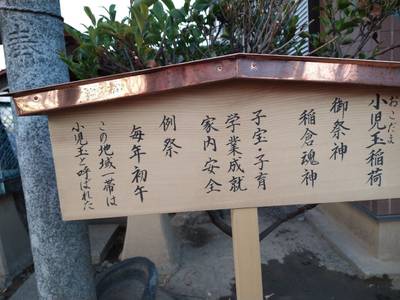 おこだま
小児玉稲荷
御祭神
稲倉魂神
子宝・子育
学業成就
家内安全
例祭
毎年初午
この地域一帯は
小児玉と呼ばれた